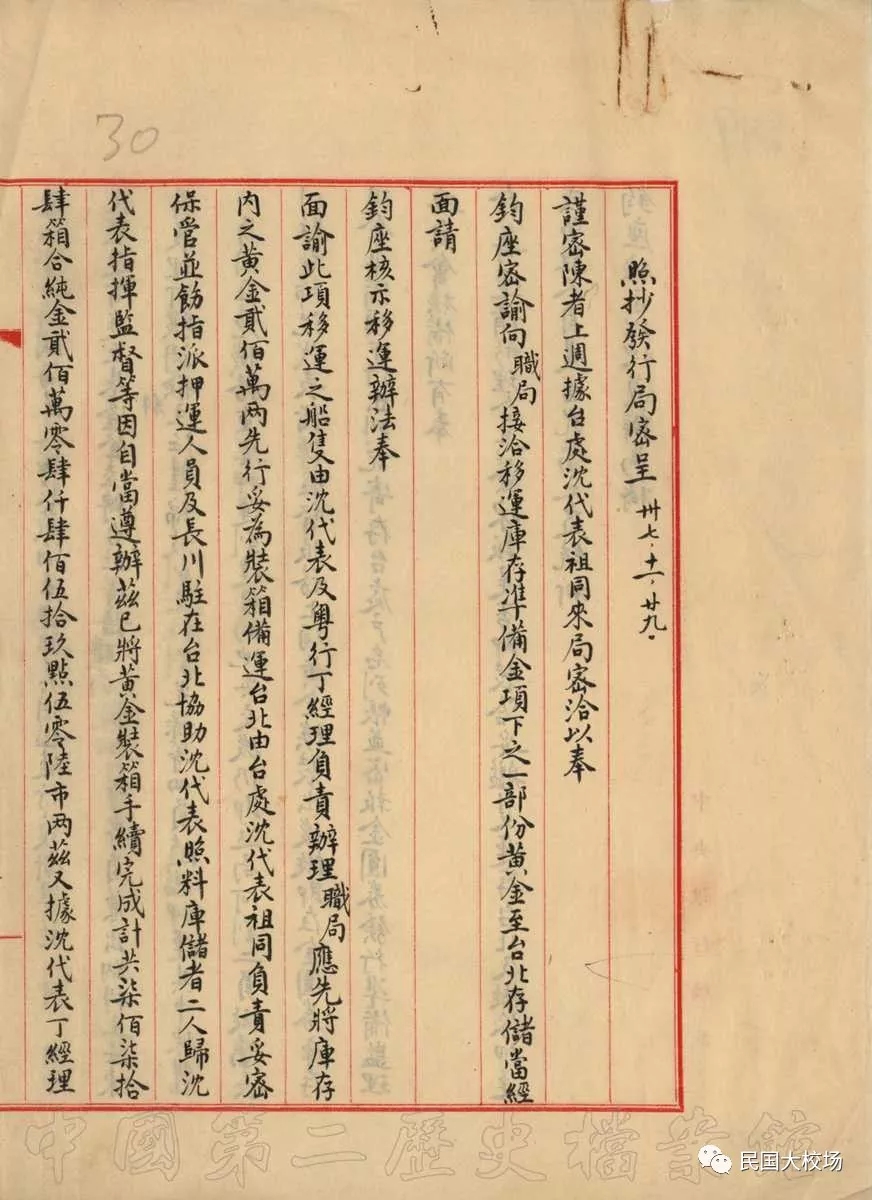 30
照抄發行局密呈 卅七·十一·廿九·
謹密陳者上週據台處沈代表祖同來局密洽以奉
鈞座密諭向職局接洽移運庫存准備金項下之一部份黃金至台北存儲當經
面請
鈞座核示移運辦法奉
面諭此項移運之船隻由沈代表及粵行丁經理負責辦理職局應先將庫存
內之黃金貳佰萬兩先行妥為裝箱備運台北由台處沈代表祖同負責妥密
保管並飭指派押運人員及長川駐在台北協助沈代表照料庫儲者二人歸沈
代表指揮監督等因自當遵辦茲已將黃金裝箱手續完成計共柒佰柒拾
肆箱合純金貳佰萬零肆仟肆佰伍拾玖點伍零陸市兩茲又據沈代表丁經理
中國第二歷史檔案館
民国大校场